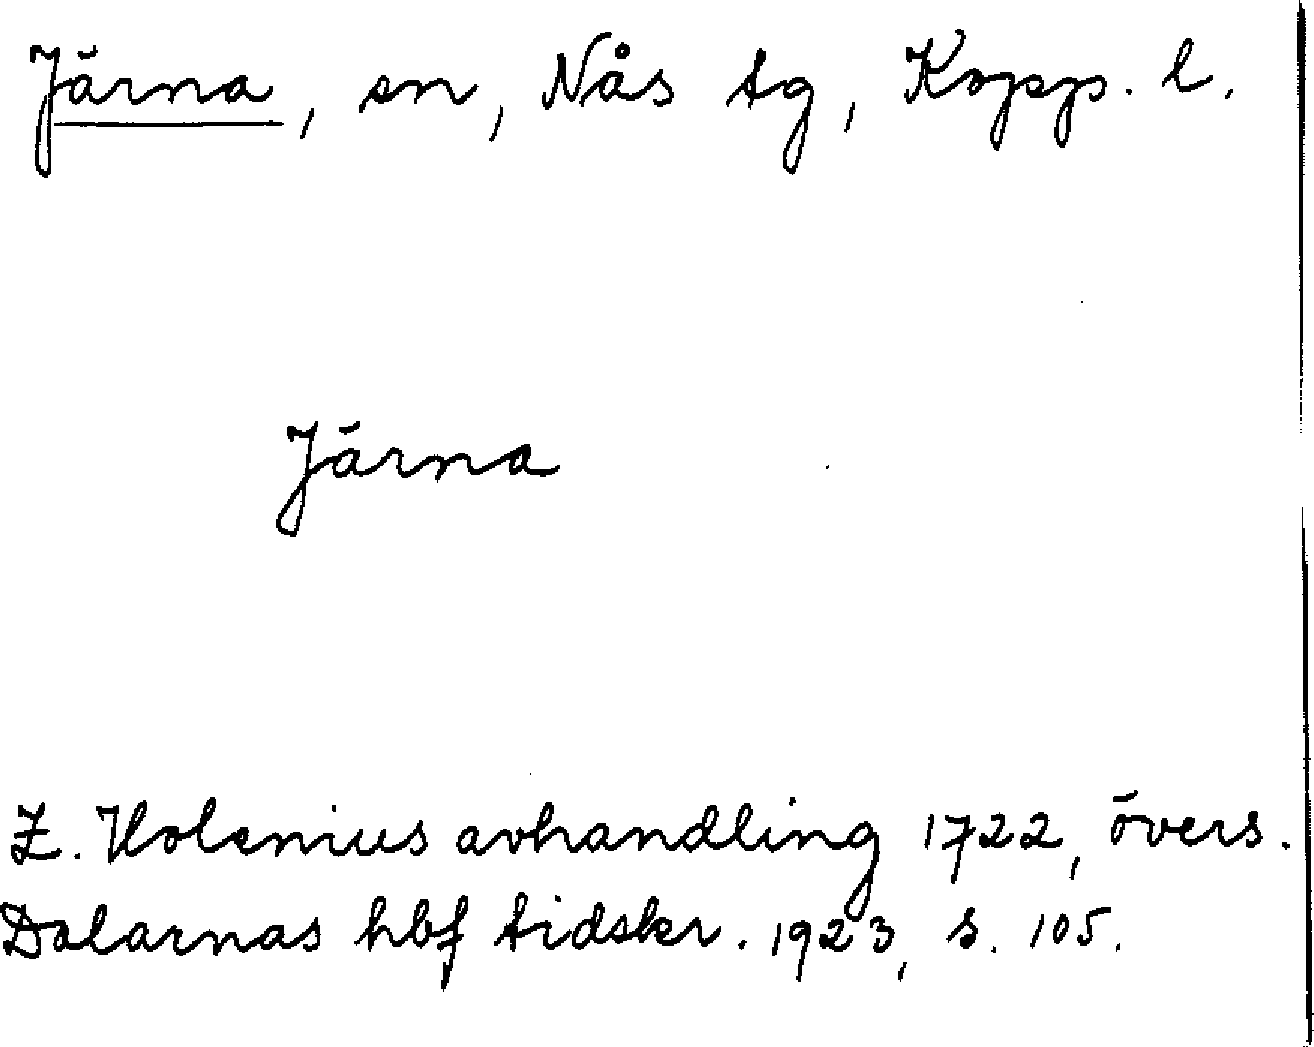 Järna, sn, Nås tg, Kopp. l.
Järna
Z. Holenius avhandling 1722, övers.
Dalarnas hbf tidskr. 1923, s. 105.